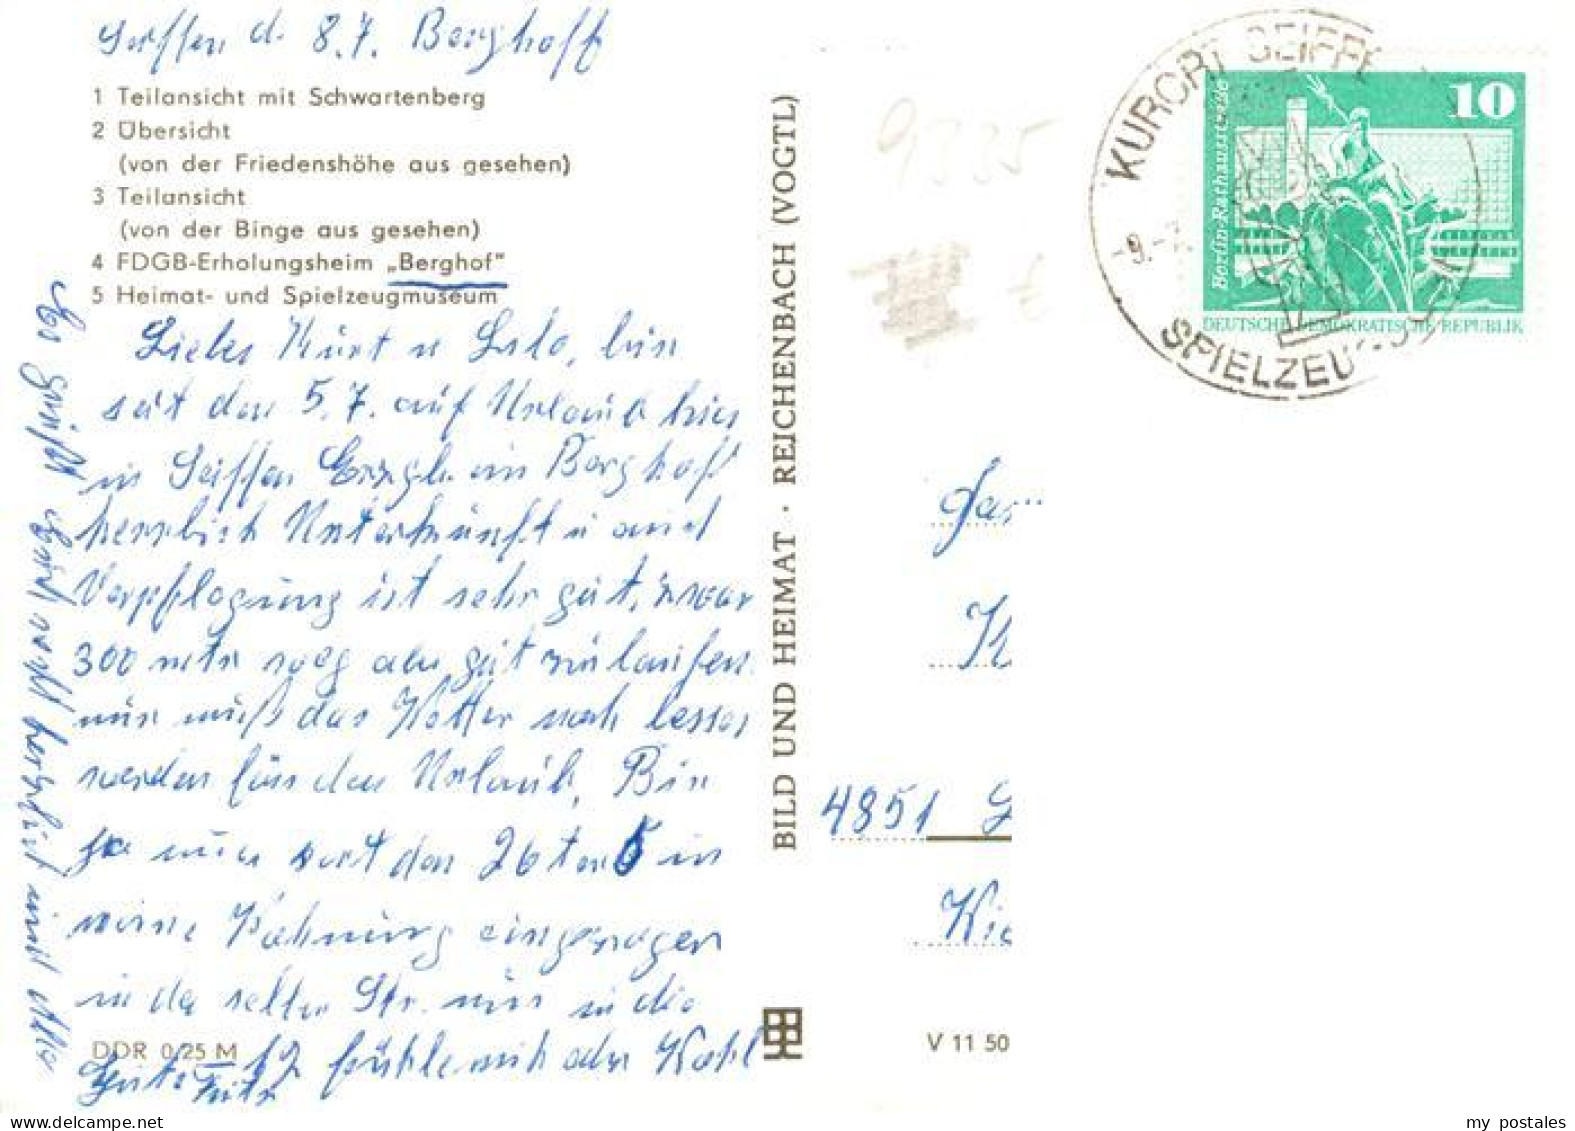 Seiffen d. 8.7. Berghoff
1 Teilansicht mit Schwartenberg
2 Übersicht
(von der Friedenshöhe aus gesehen)
3 Teilansicht
(von der Binge aus gesehen)
4 FDGB-Erholungsheim „Berghof“
5 Heimat- und Spielzeugmuseum
Liebes Kurt u Lilo, bin
seit den 5.7. auf Urlaub hier
in Seiffen Erzgb. im Berghoff
herrlich Unterkunft u auch
Verpflegung ist sehr gut, zwar
300 mtr weg aber gut zum laufen
nur muß das Wetter noch besser
werden für den Urlaub, Bin
ja nun seit den 26ten 5 in
meine Wohnung eingezogen
in der selben Str. nur in die
12 fühle mich aber Wohl
Fritz
Es grüßt Euch recht herzlich mit Alles
Gute
DDR 0,25 M
BILD UND HEIMAT · REICHENBACH (VOGTL)
9335
€
KURORT SEIFFE
-9.-7.
SPIELZEU
10
Berlin-Rathausstraße
DEUTSCHE DEMOKRATISCHE REPUBLIK
Fam
K
4851 G
Wie
V 11 50
my postales